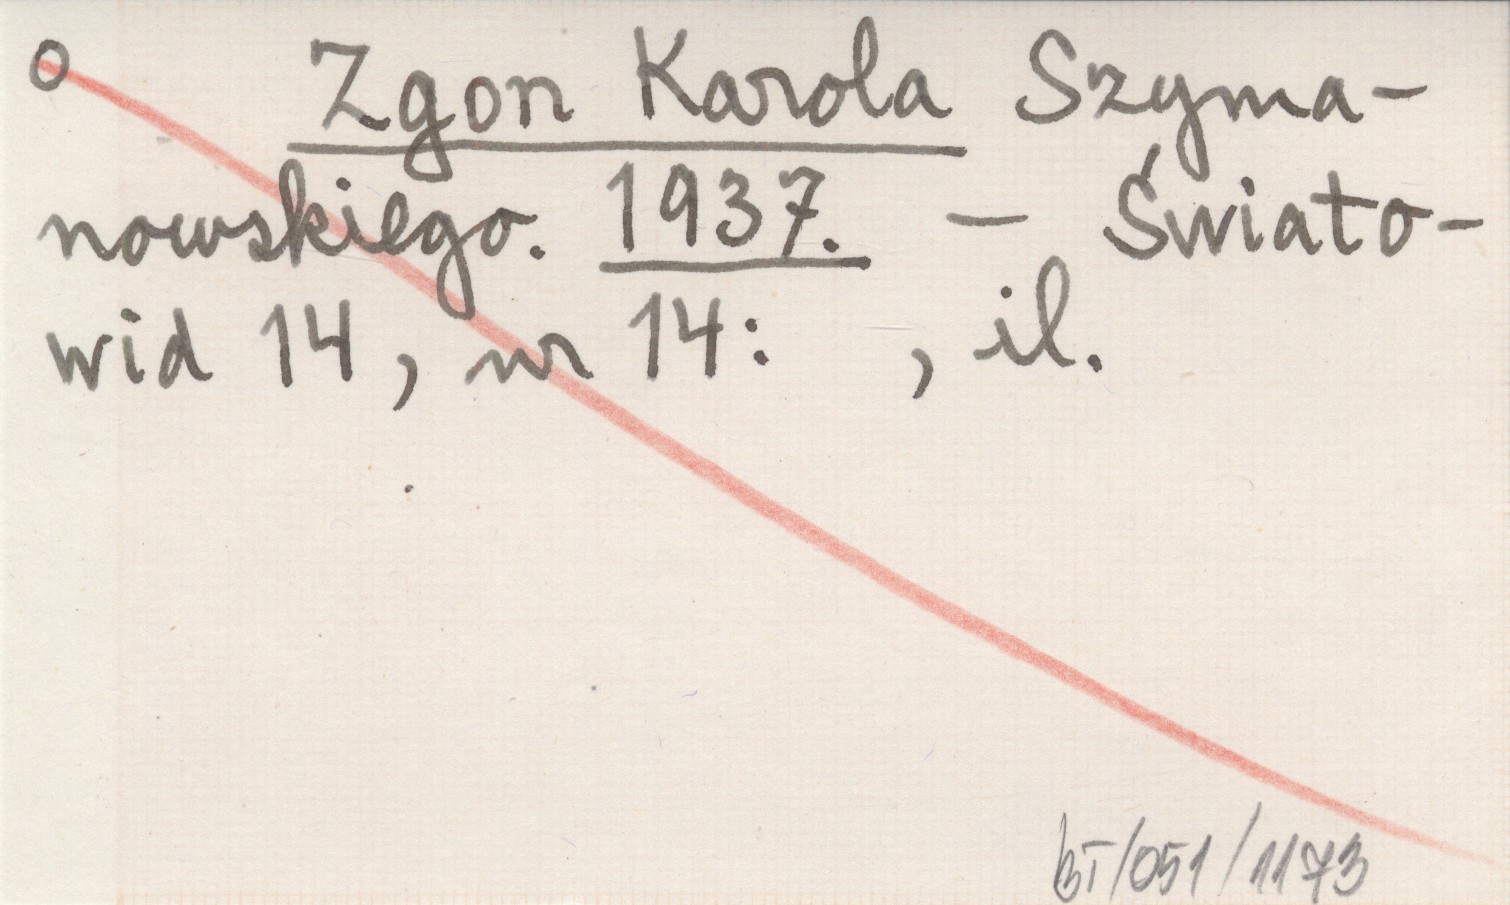 O Zgon Karola Szyma-
nowskiego. 1937. – Świato-
wid 14, nr 14: , il.
BT/051/1173